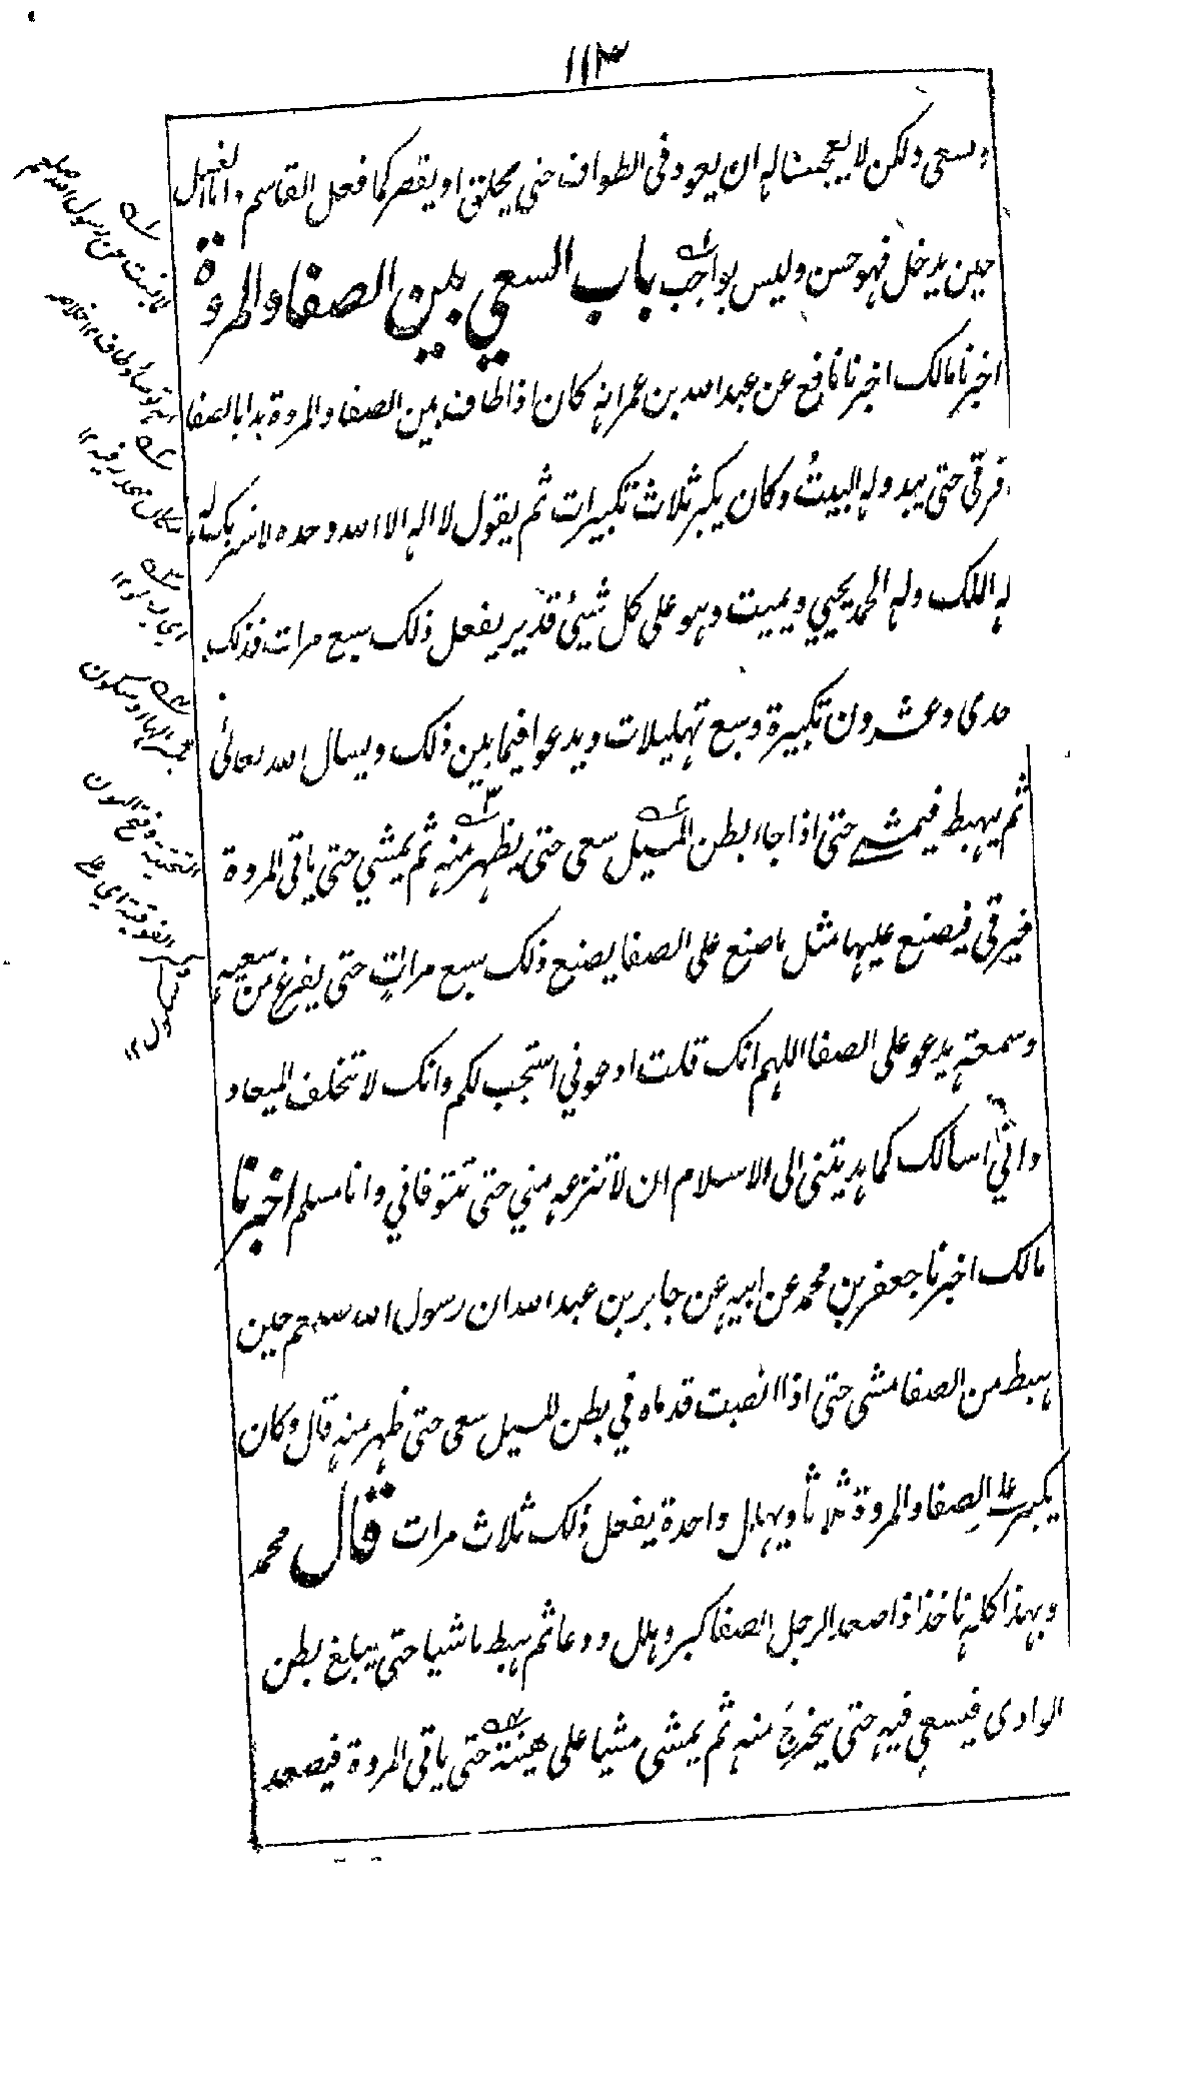 ١١٣
وسعى ولكن لا يعجبنا له ان يعود في الطواف حتى يحلق او يقصر كما فعل القاسم واما الغسل
حين يدخل فهو حسن وليس بواجب باب السعي بين الصفا والمروة
اخبرنا مالك اخبرنا نافع عن عبد الله بن عمر انه كان اذا طاف بين الصفا والمروة بدا بالصفا
فرقى حتى يبدو له البيت وكان يكبر ثلاث تكبيرات ثم يقول لا اله الا الله وحده لا شريك له
له الملك وله الحمد يحيي ويميت وهو على كل شيئ قدير يفعل ذلك سبع مرات فذلك
حدى وعشرون تكبيرة وسبع تهليلات ويدعو افيما بين ذلك ويسال الله تعالى
ثم يهبط فيمشي حتى اذا جاء بطن المسيل سعى حتى يظهر منه ثم يمشي حتى ياتي المروة
فيرقى فيصنع عليها مثل ما صنع على الصفا يصنع ذلك سبع مرات حتى يفرغ من سعيه
وسمعته يدعو على الصفا اللهم انك قلت ادعوني استجب لكم وانك لا تخلف الميعاد
واني اسالك كما هديتني الى الاسلام ان لا تنزعه مني حتى تتوفاني وانا مسلم اخبرنا
مالك اخبرنا جعفر بن محمد عن ابيه عن جابر بن عبد الله ان رسول الله صلعم حين
هبط من الصفا مشى حتى اذا انصبت قدماه في بطن المسيل سعى حتى ظهر منه قال وكان
يكبر على الصفا والمروة ثلاثا ويهلل واحدة يفعل ذلك ثلاث مرات قال محمد
وبهذا كله ناخذ اذا صعد الرجل الصفا كبر وهلل ودعا ثم هبط ماشيا حتى يبلغ بطن
الوادى فيسعى فيه حتى يخرج منه ثم يمشى مشيا على هينته حتى ياتي المروة فيصعد
لما ثبت عن رسول الله صلعم